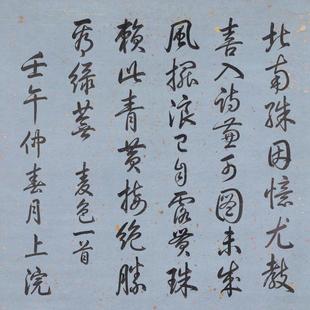 北南殊因憶尤教
喜入詩兼可圖未成
風擺浪已自露貫珠
賴此青黃接絶勝
秀緑蕪 麥色一首
壬午仲春月上浣